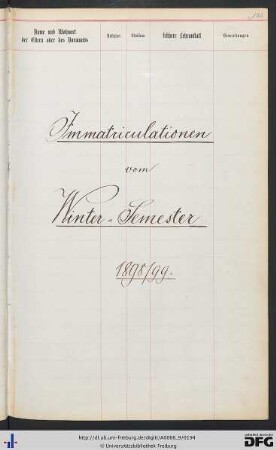 Name und Wohnort
der Eltern oder des Vormunds
Religion
Studium
frühere Lehranstalt
Bemerkungen
Immatriculationen
vom
Winter-Semester
1898/99.
http://dl.ub.uni-freiburg.de/diglit/A0066_9/0194
© Universitätsbibliothek Freiburg
gefördert durch
DFG